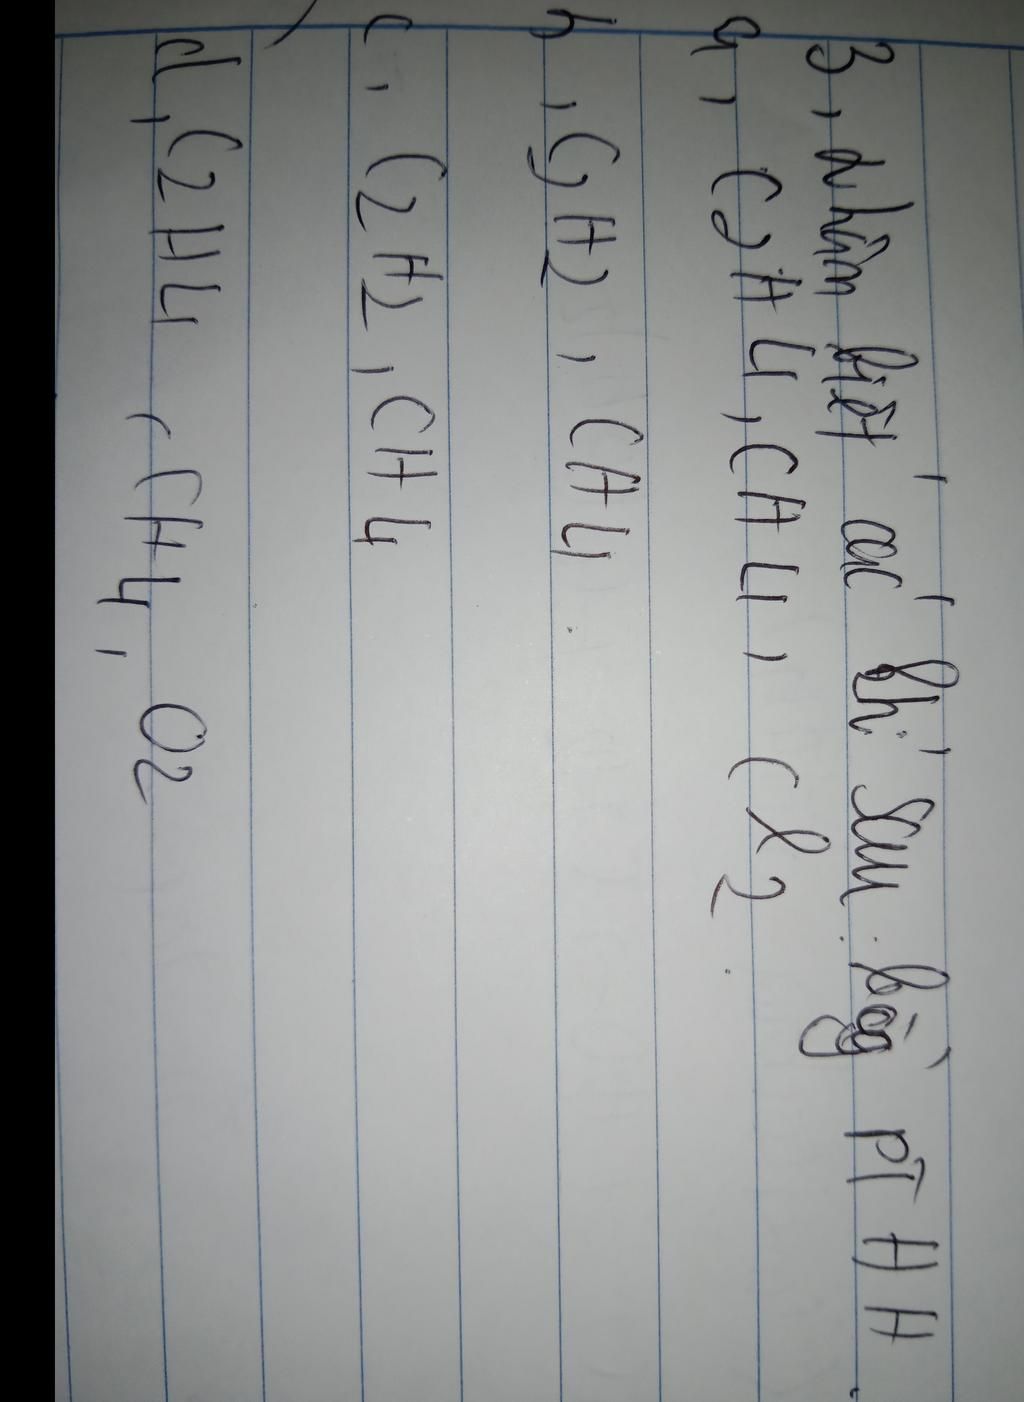 3, Nhận biết các khí sau bằng PTHH.
a, C2H4, CH4, Cl2.
b, C2H2, CH4.
c, C2H2, CH4
d, C2H4, CH4, O2